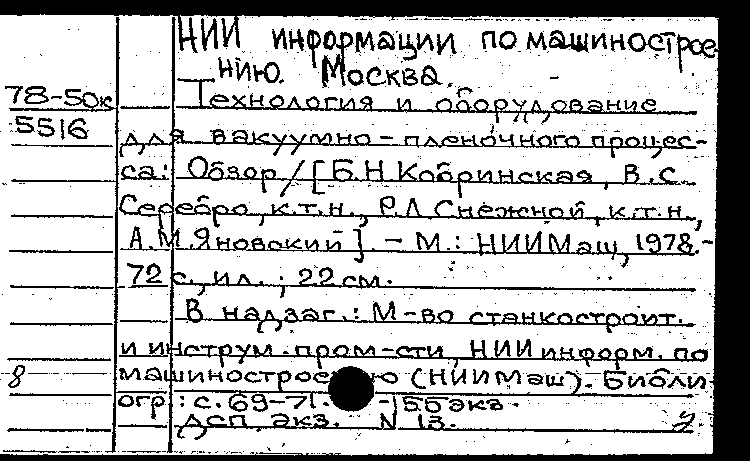 НИИ информации по машинострое-
нию. Москва.
78-50к
5516
Технология и оборудование
для вакуумно-пленочного процес-
са: Обзор/[Б.Н.Кобринская, В.С.
Серебро, к.т.н., Р.Л Снежной, к.т.н.,
А.М.Яновский]. - М.: НИИМаш, 1978.-
72 с., ил. ; 22 см.
В надзаг.: М-во станкостроит.
и инструм. пром-сти, НИИ информ. по
8
машинострое ю (НИИМаш). Библи
огр: с. 69-71. - 155 экз.
ДСП, экз. N 13.
2.